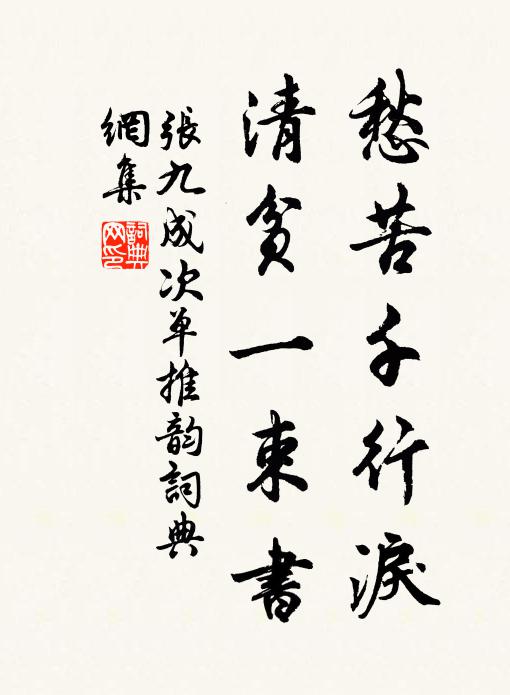 愁苦千行淚
清貧一束書
張九成次单推韵詞典
網集
詞典
网印